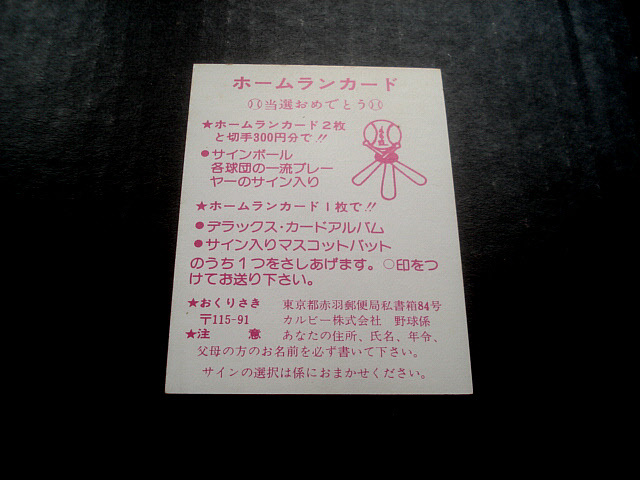 ホームランカード
当選おめでとう
★ホームランカード2枚
と切手300円分で!!
●サインボール
各球団の一流プレー
ヤーのサイン入り
★ホームランカード1枚で!!
●デラックス・カードアルバム
●サイン入りマスコットバット
のうち1つをさしあげます。○印をつ
けてお送り下さい。
★おくりさき 東京都赤羽郵便局私書箱84号
〒115-91 カルビー株式会社 野球係
★注 意 あなたの住所、氏名、年令、
父母の方のお名前を必ず書いて下さい。
サインの選択は係におまかせください。